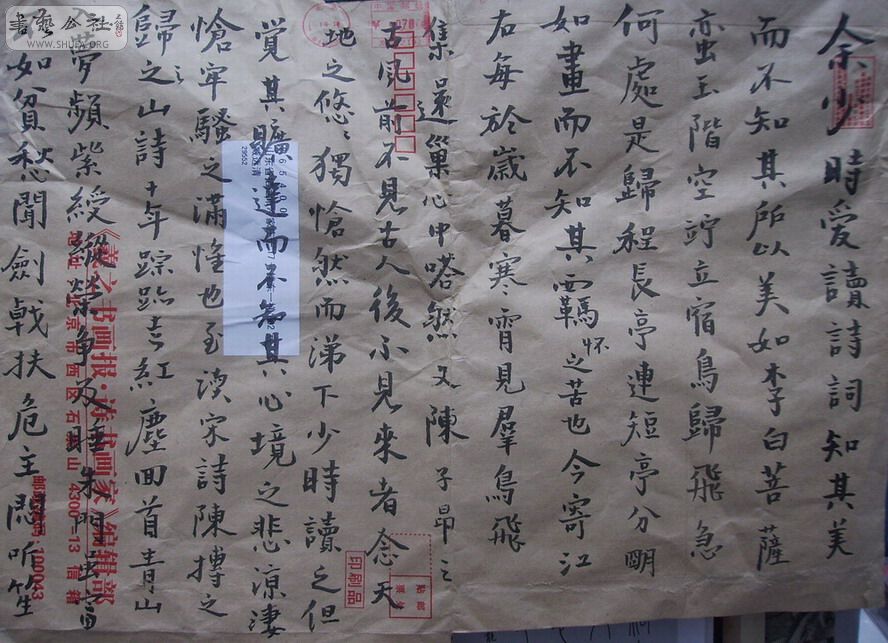 余少時愛讀詩詞知其美
而不知其所以美如李白菩薩
蛮玉階空竚立宿鳥歸飛急
何處是歸程長亭連短亭分明
如畫而不知其羈怀之苦也今寄江
右每於歲暮寒宵見羣鳥飛
集還巢心中嗒然又陳子昂之
古風前不見古人後不見來者念天
地之悠悠獨愴然而涕下少時讀之但
覺其曠達而不知其心境之悲凉淒
愴牢騷之滿懷也至读宋詩陳摶之
歸之山詩十年踪跡走紅塵回首青山
入夢頻紫綬縱榮争及睡朱門雖富
不如貧愁聞劍戟扶危主悶听笙
書藝公社
WWW.SHUFA.ORG
《羲之书画报·读书画家》编辑部
地址：北京市西区石景山 4300-13 信箱
邮政编码 100043
印刷品
29552